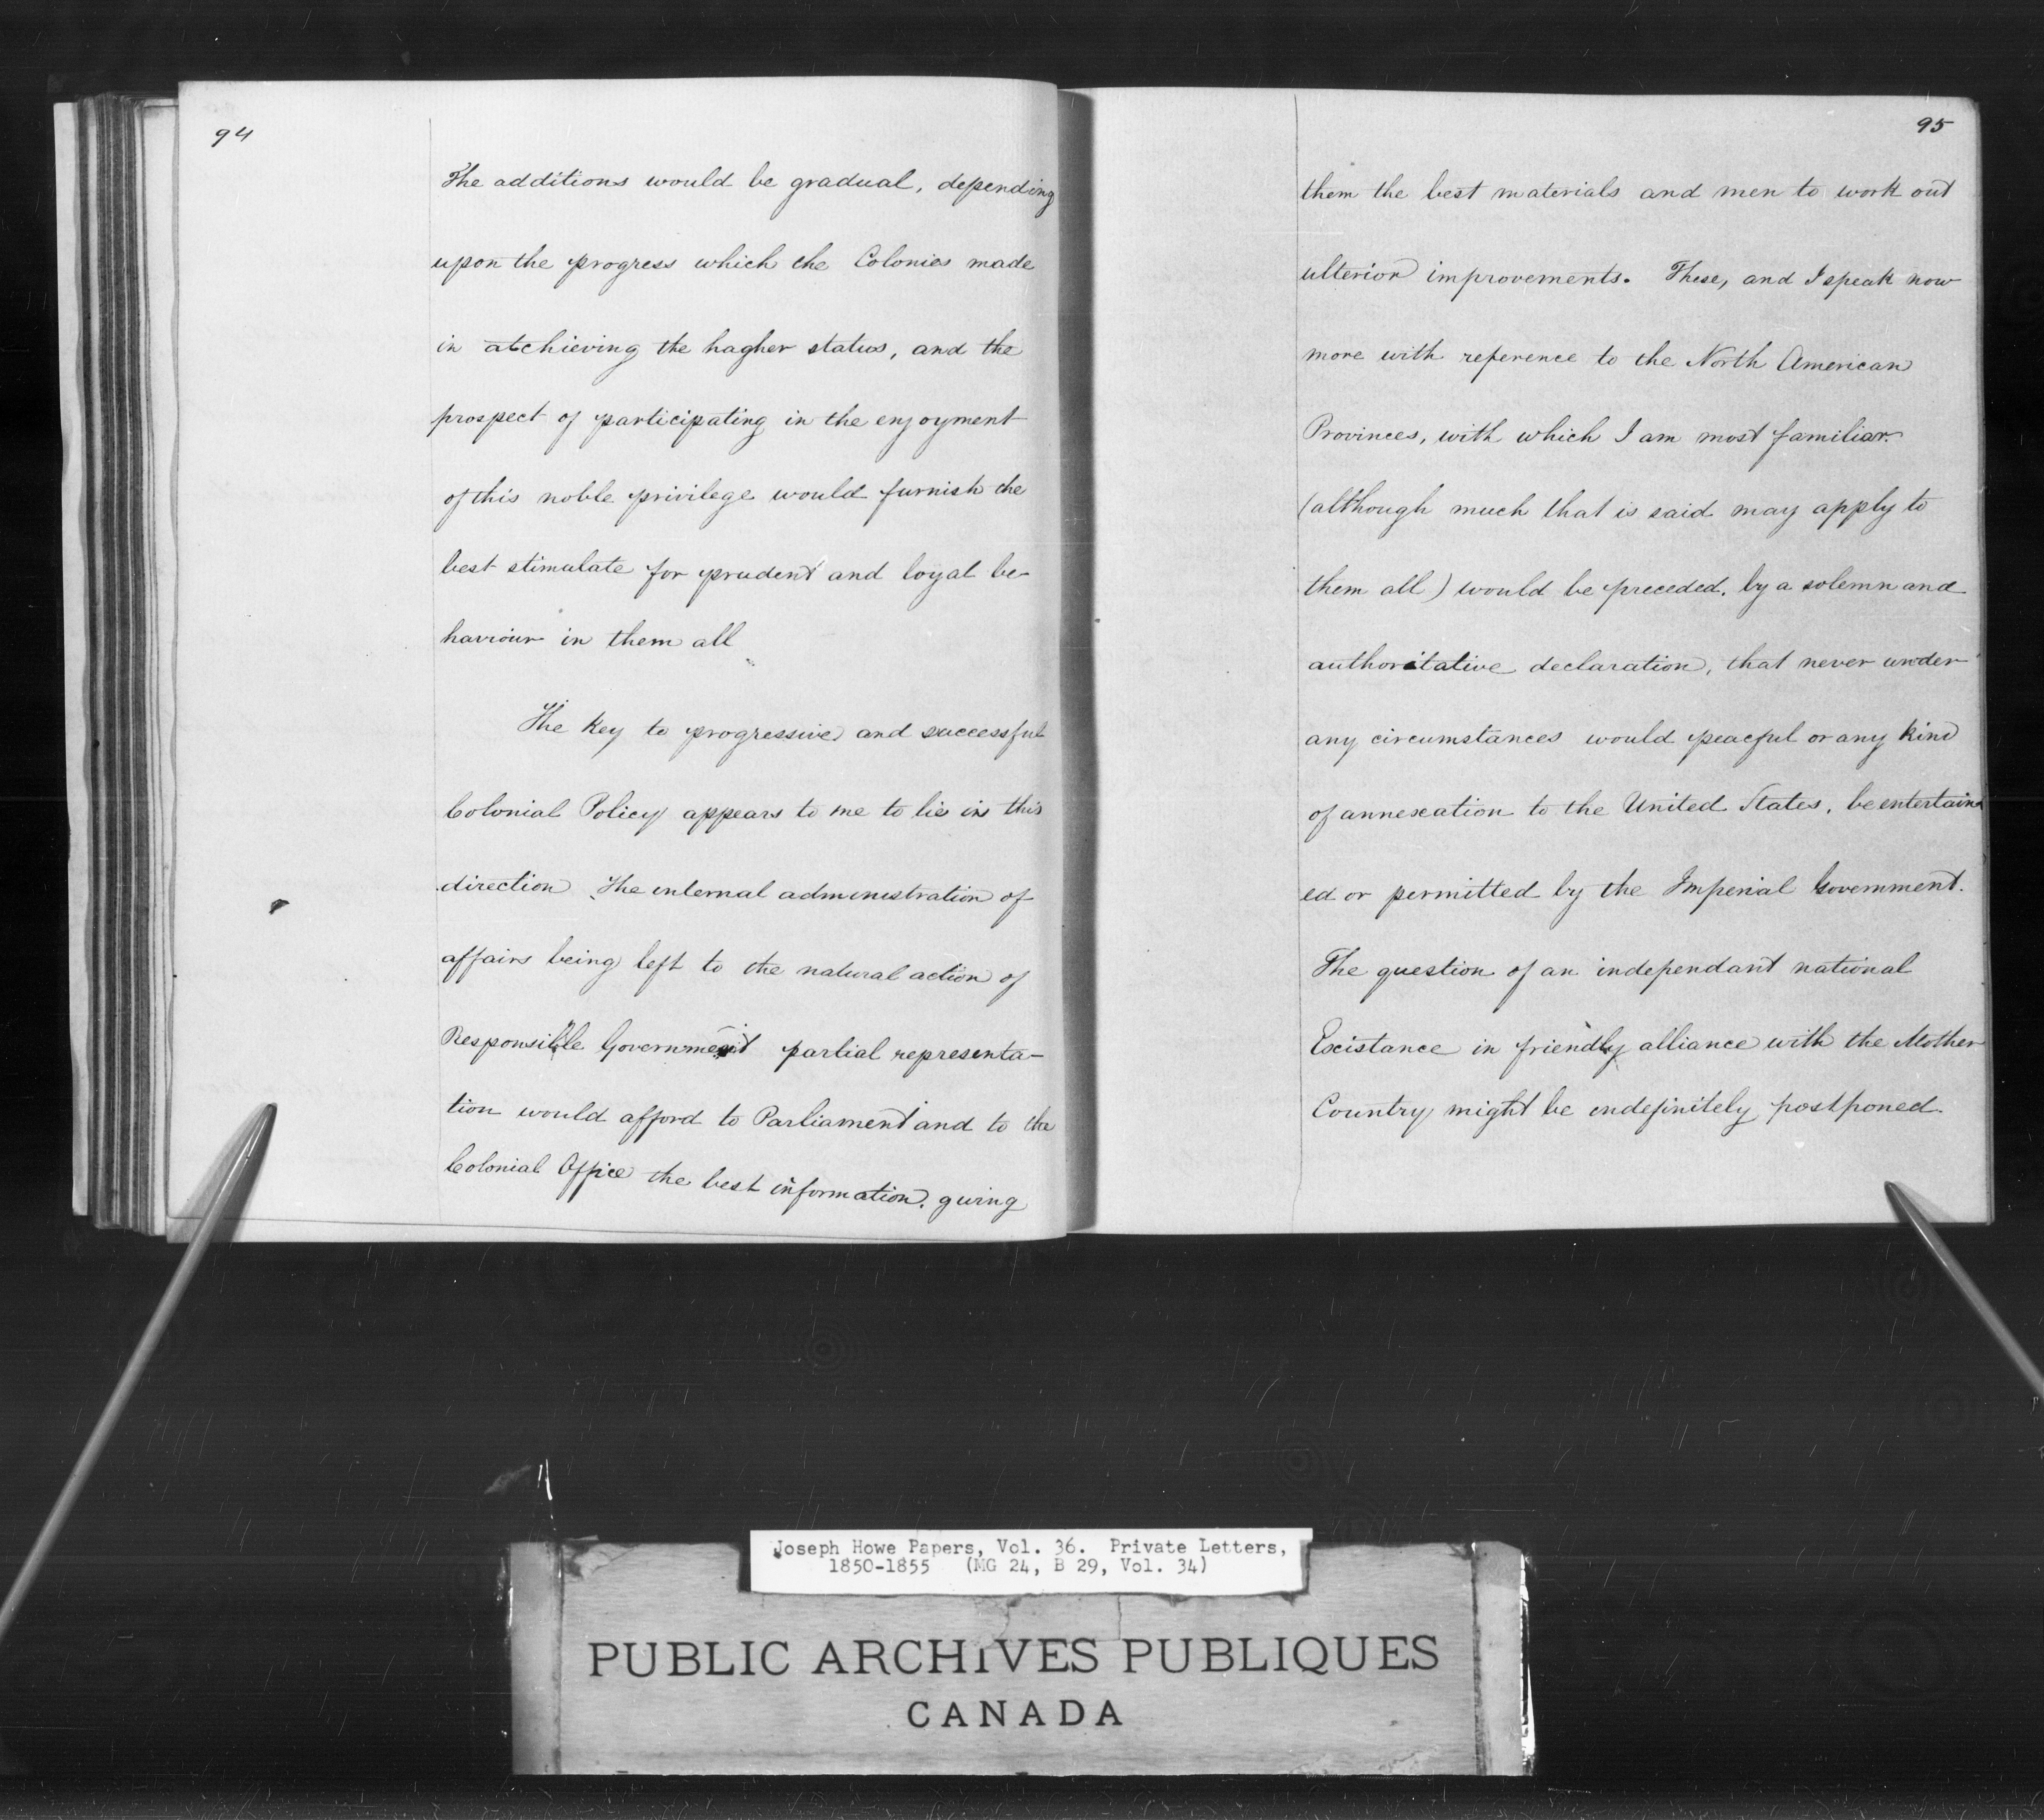 94
The additions would be gradual, depending
upon the progress which the Colonies made
in atchieving the hagher status, and the
prospect of participating in the enjoyment
of this noble privilege would furnish the
best stimulate for prudent and loyal be-
haviour in them all
The key to progressive and successful
Colonial Policy appears to me to lie in this
direction. The internal administration of
affairs being left to the natural action of
Responsible Government partial representa-
tion would afford to Parliament and to the
Colonial Office the best information, giving
95
them the best materials and men to work out
ulterior improvements. These, and I speak now
more with reference to the North American
Provinces, with which I am most familiar.
(although much that is said may apply to
them all) would be preceded, by a solemn and
authoritative declaration, that never under
any circumstances would peaceful or any kind
of annexation to the United States, be entertain
ed or permitted by the Imperial Government.
The question of an independant national
Existance in friendly alliance with the Mother
Country might be indefinitely postponed.
Joseph Howe Papers, Vol. 36. Private Letters,
1850-1855 (MG 24, B 29, Vol. 34)
PUBLIC ARCHIVES PUBLIQUES
CANADA